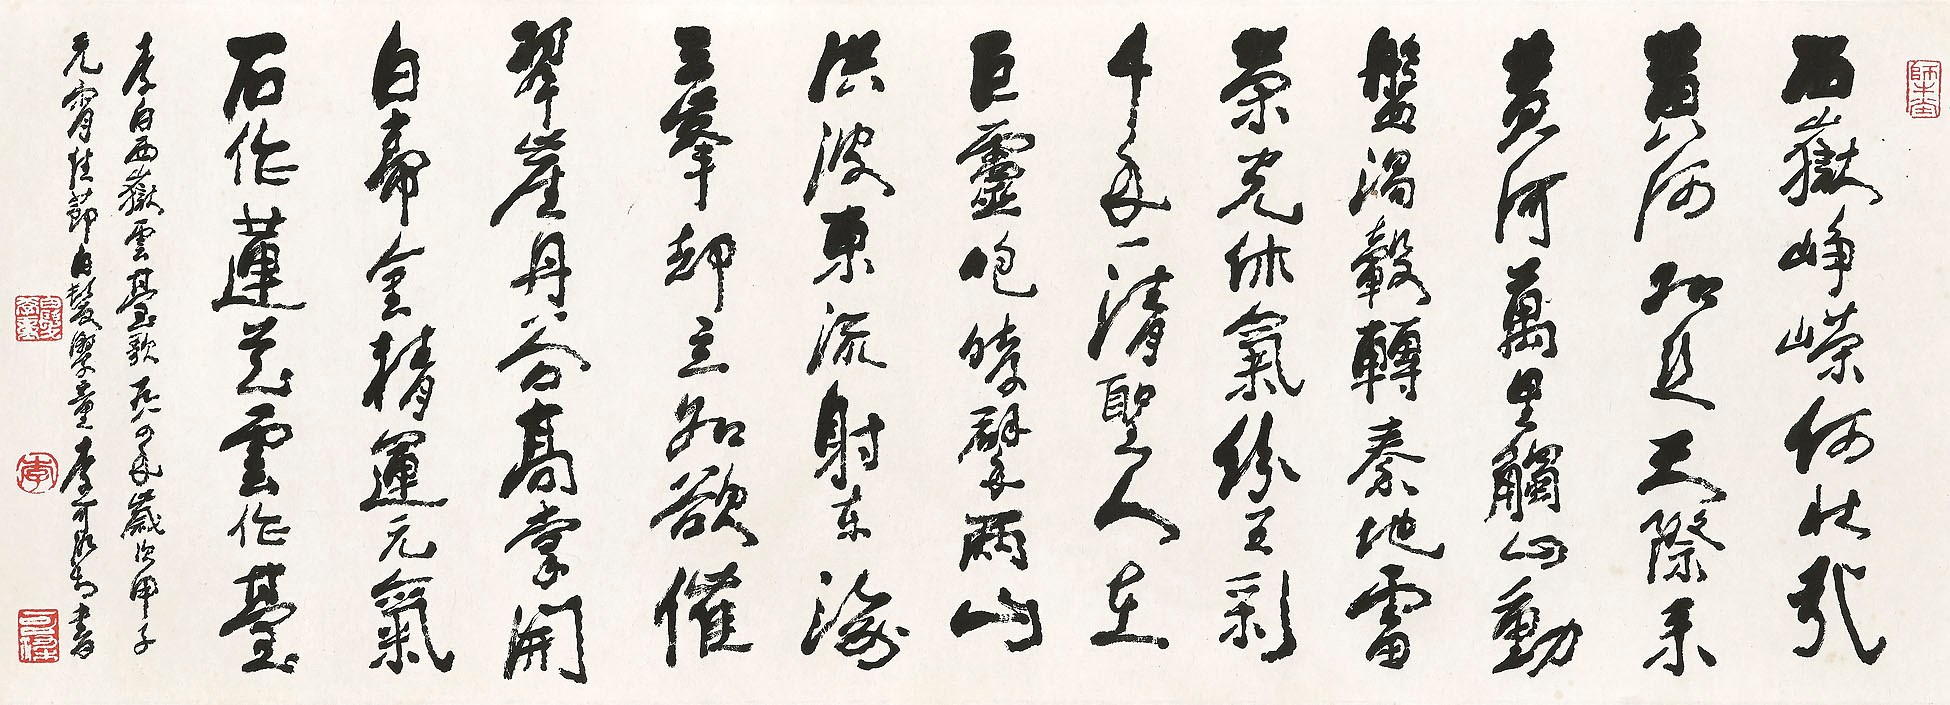 師牛堂
西嶽崢嶸何壯哉
黄河如絲天際来
黄河萬里觸山動
盤渦轂轉秦地雷
榮光休氣紛五彩
千年一清聖人在
巨靈咆哮擘兩山
洪波東流射東海
三峯却立如欲催
翠崖丹谷高掌開
白帝金精運元氣
石作蓮花雲作臺
李白西嶽雲臺歌 一九八四年歲次甲子
元宵佳節白髮學童李可染書
白髮學童
李